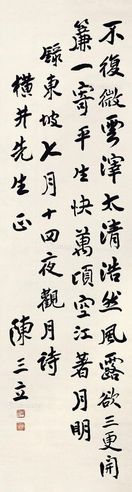 不復微雲滓太清浩然風露欲三更開
簾一寄平生快萬頃空江著月明
錄東坡七月十四夜觀月詩
橫井先生正 陳三立